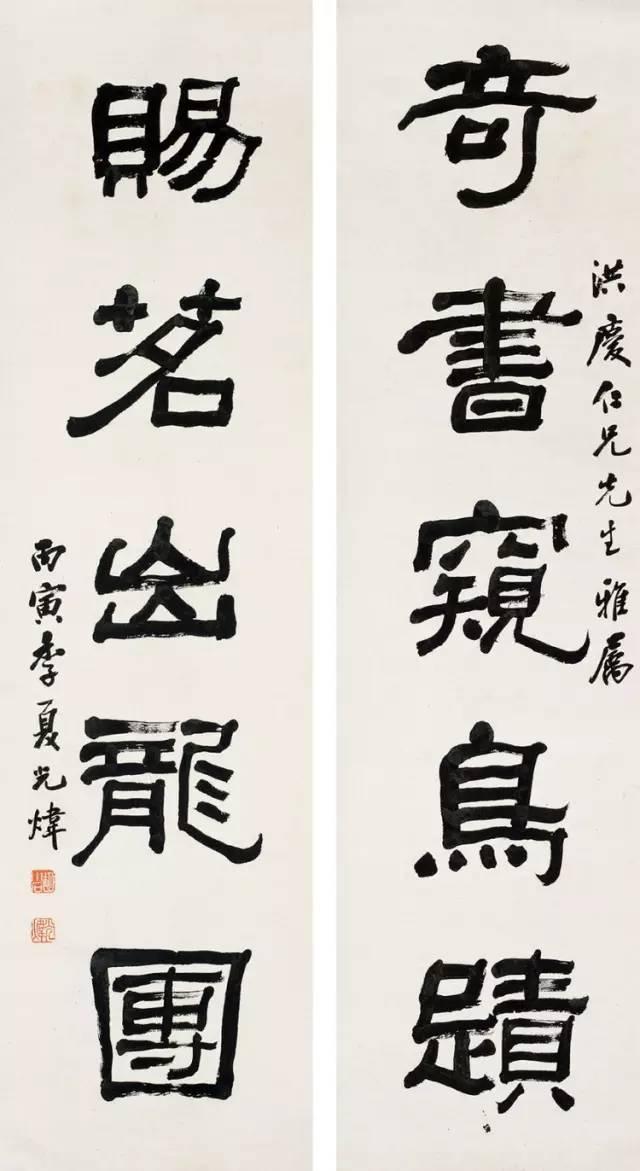 洪慶仁兄先生雅屬
奇書窺鳥蹟
賜茗出龍團
丙寅季夏光煒